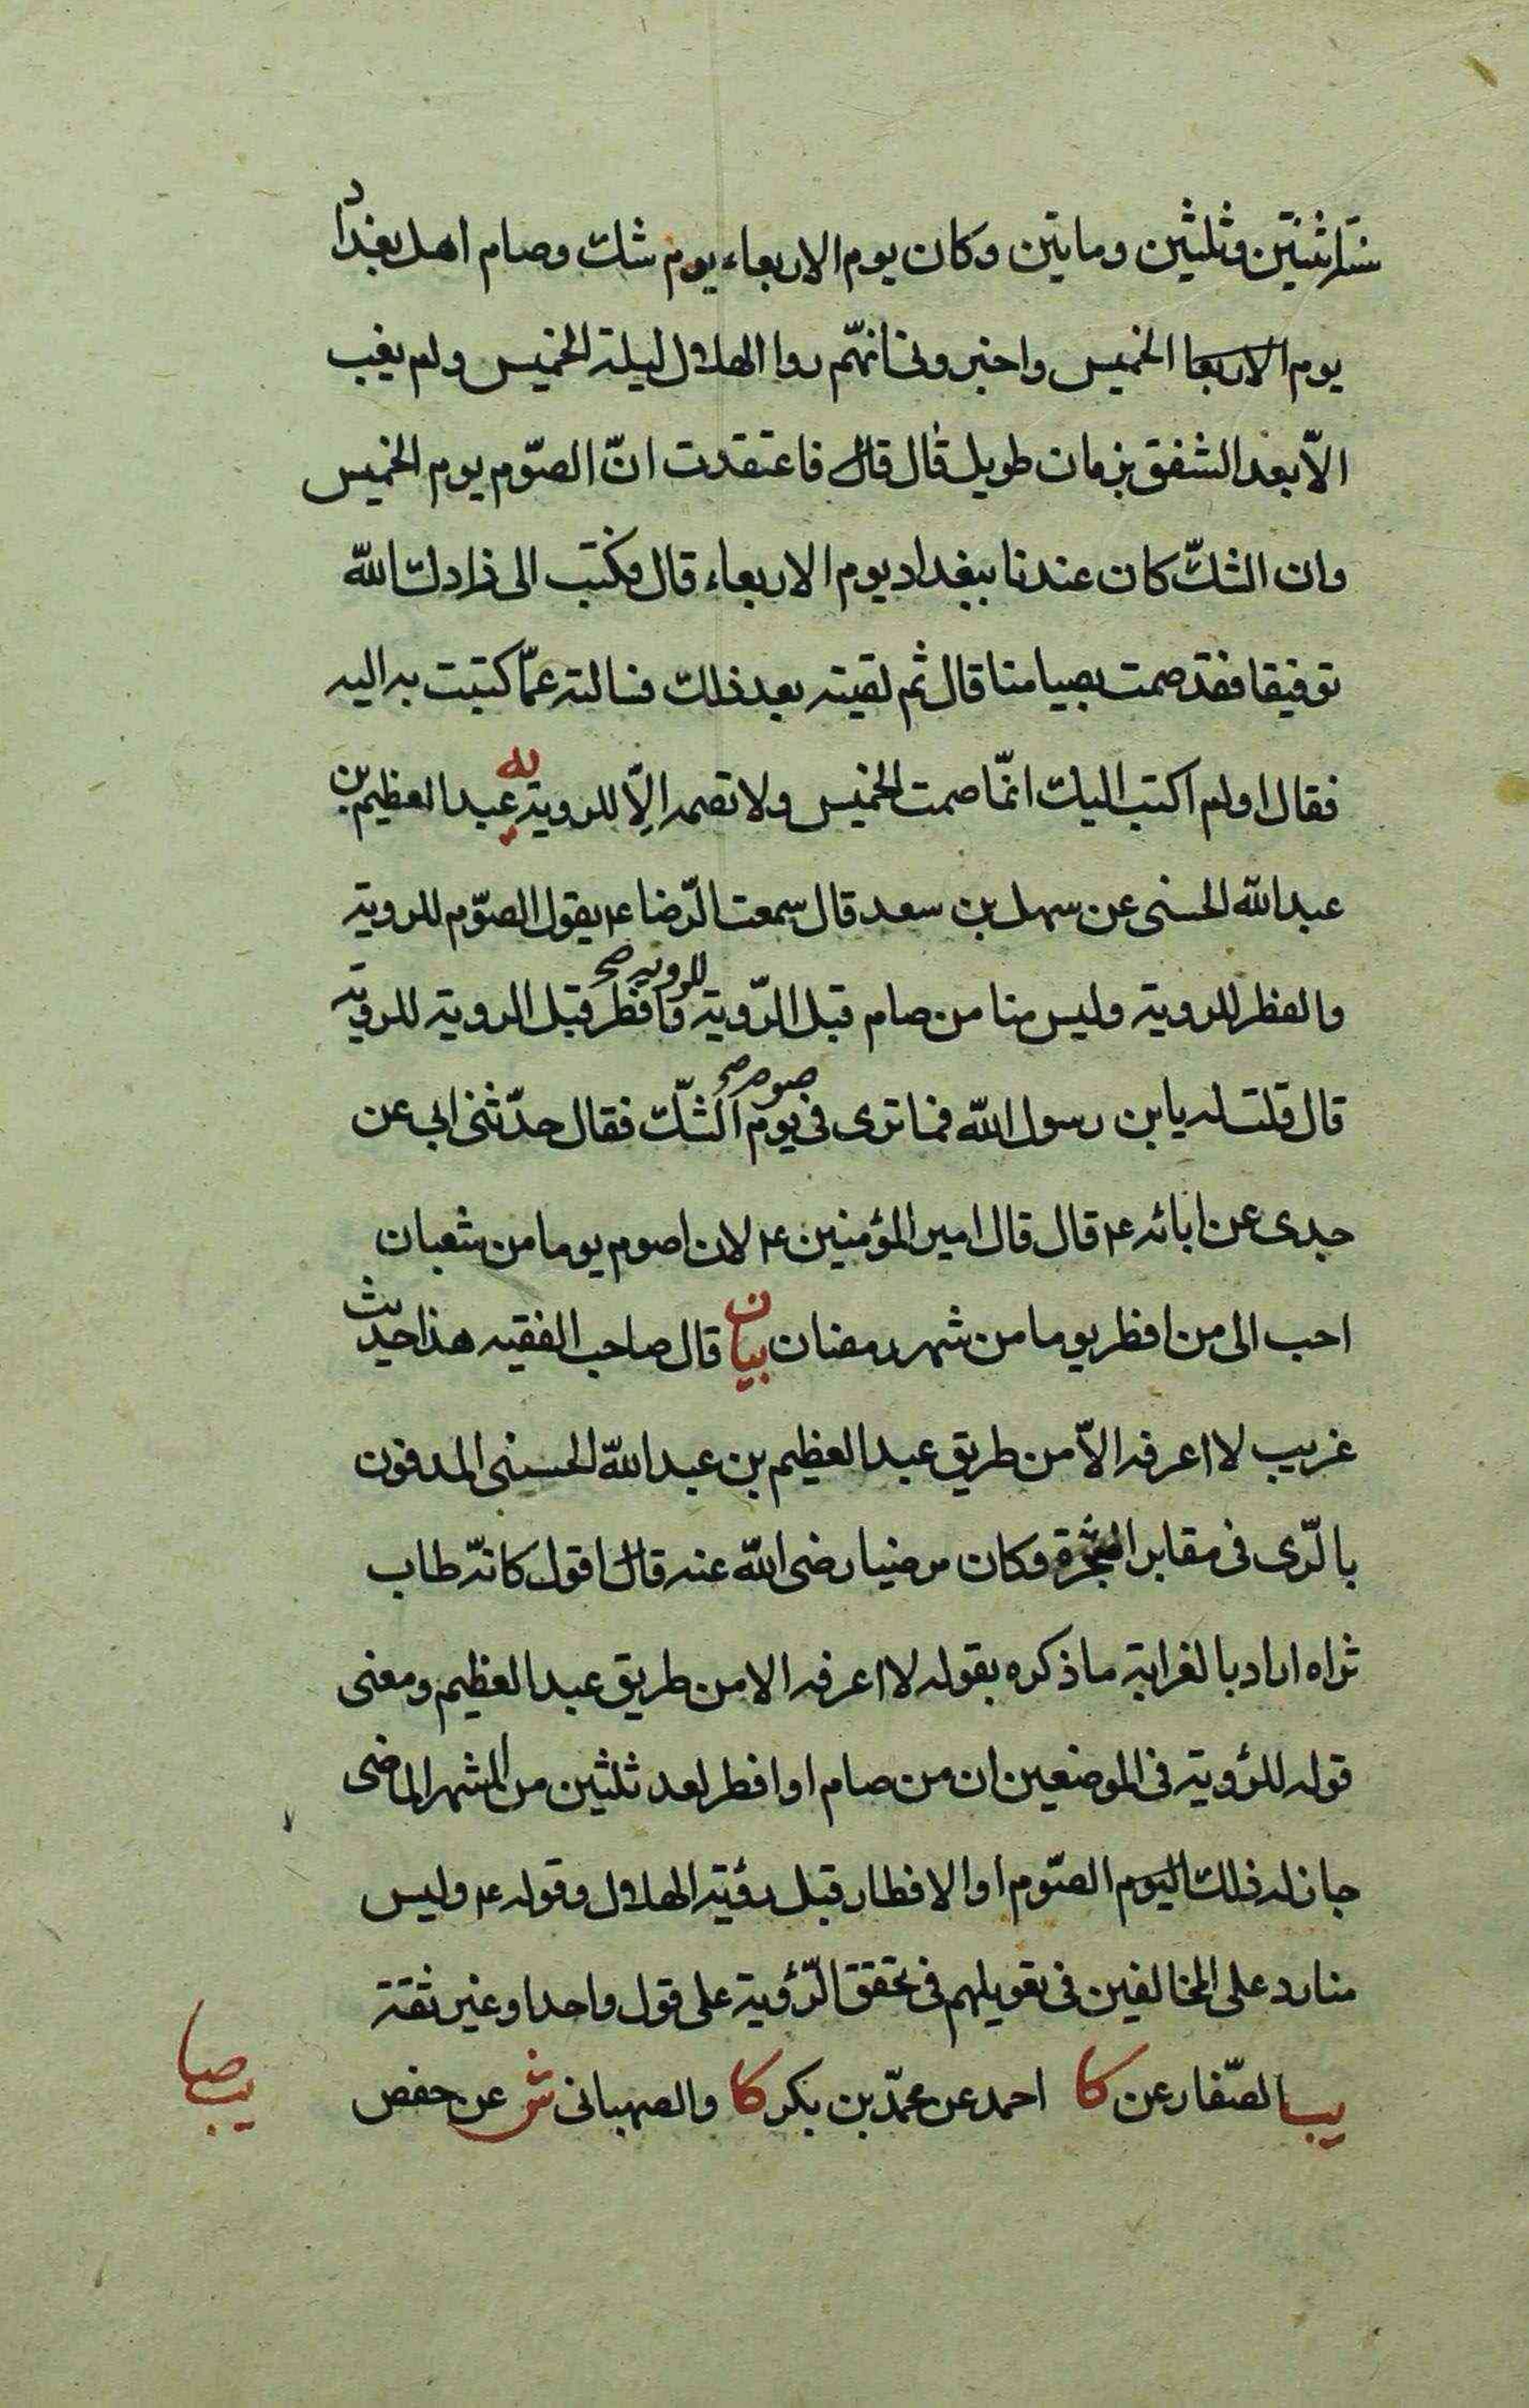 سنة اثنتين وثلثين وماتين وكان يوم الاربعاء يوم شك وصام اهل بغداد
يوم الاربعا الخميس واخبرونى انهّم روا الهلال ليلة الخميس ولم يغب
الّا بعد الشفق بزمان طويل قال قال فاعتقدت انّ الصّوم يوم الخميس
وان الشكّ كان عندنا ببغداد يوم الاربعاء قال فكتب الى زادك اللّه
توفيقا فقد صمت بصيامنا قال ثم لقيته بعد ذلك فسالته عمّا كتبت به اليه
فقال اولم اكتب اليك انمّا صمت الخميس ولا تصمه الّا للروية يه عبد العظيم بن
عبد اللّه الحسنى عن سهل بن سعد قال سمعت الرّضا ع يقول الصوّم للروية
والفطر للروية وليس منا من صام قبل الرّوية للروية صح وافطر قبل الروية للروية
قال قلت له يابن رسول اللّه فما ترى فى صوم صح يوم الشكّ فقال حدّثنى ابى عن
جدى عن ابائه ع قال قال امير المؤمنين ع لان اصوم يوما من شعبان
احب الى من افطر يوما من شهر رمضان بيان قال صاحب الفقيه هذا حديث
غريب لا اعرفه الاّ من طريق عبد العظيم بن عبد اللّه الحسينى المدفون
بالرّى فى مقابر الشجرة وكان مرضيا رضى اللّه عنه قال اقول كانّه طاب
ثراه اراد بالغرابة ما ذكره بقوله لا اعرفه الا من طريق عبد العظيم ومعنى
قوله للرؤية فى الموضعين ان من صام او افطر لعد ثلثين من الشهر الماضى
جاز له ذلك اليوم الصّوم او الافطار قبل رؤية الهلال وقوله ع وليس
منا رد على المخالفين فى تعويلهم فى تحقق الرّؤية على قول واحد او غير ثقة
يب الصّفار عن كا احمد عن محمّد بن بكر كا والصهبانى ش عن حفص
صا
يب